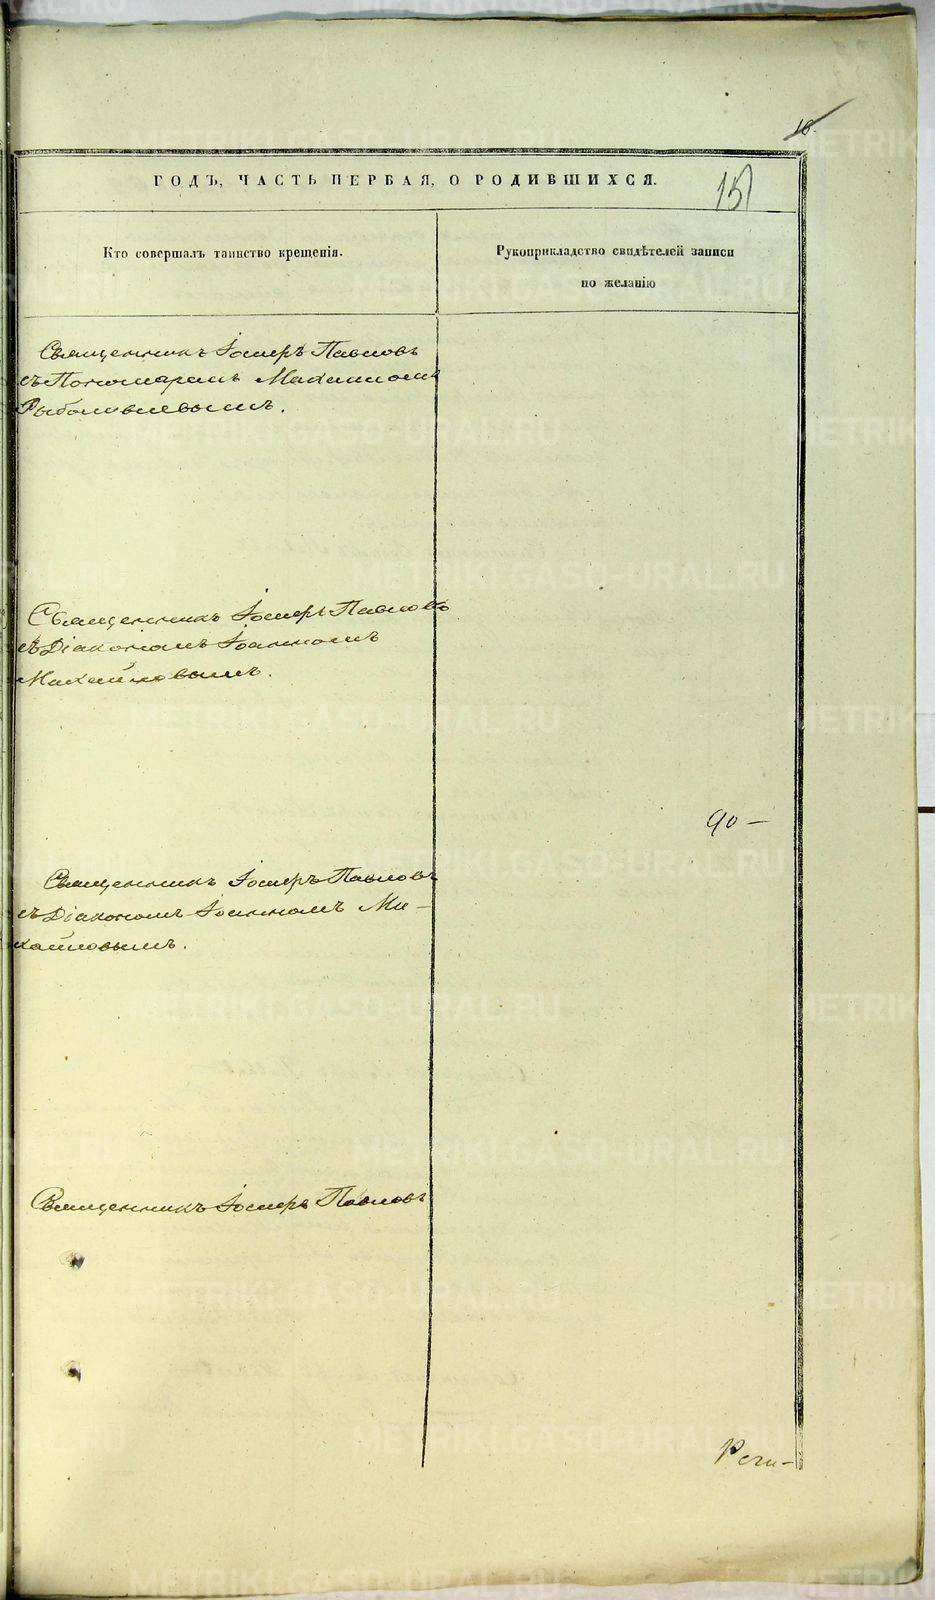 18.
ГОДЪ, ЧАСТЬ ПЕРВАЯ, О РОДИВШИХСЯ.
151
Кто совершалъ таинство крещенія.
Рукоприкладство свидѣтелей записи
по желанію
Священникъ Іосифъ Павловъ
съ Пономаремъ Михаиломъ
Рыболовлевымъ.
Священникъ Іосифъ Павловъ
съ Діакономъ Іоанномъ
Михайловымъ.
90 —
Священникъ Іосифъ Павловъ
съ Діакономъ Іоанномъ Ми-
хайловымъ.
Священникъ Іосифъ Павловъ
METRIKI.GASO-URAL.RU